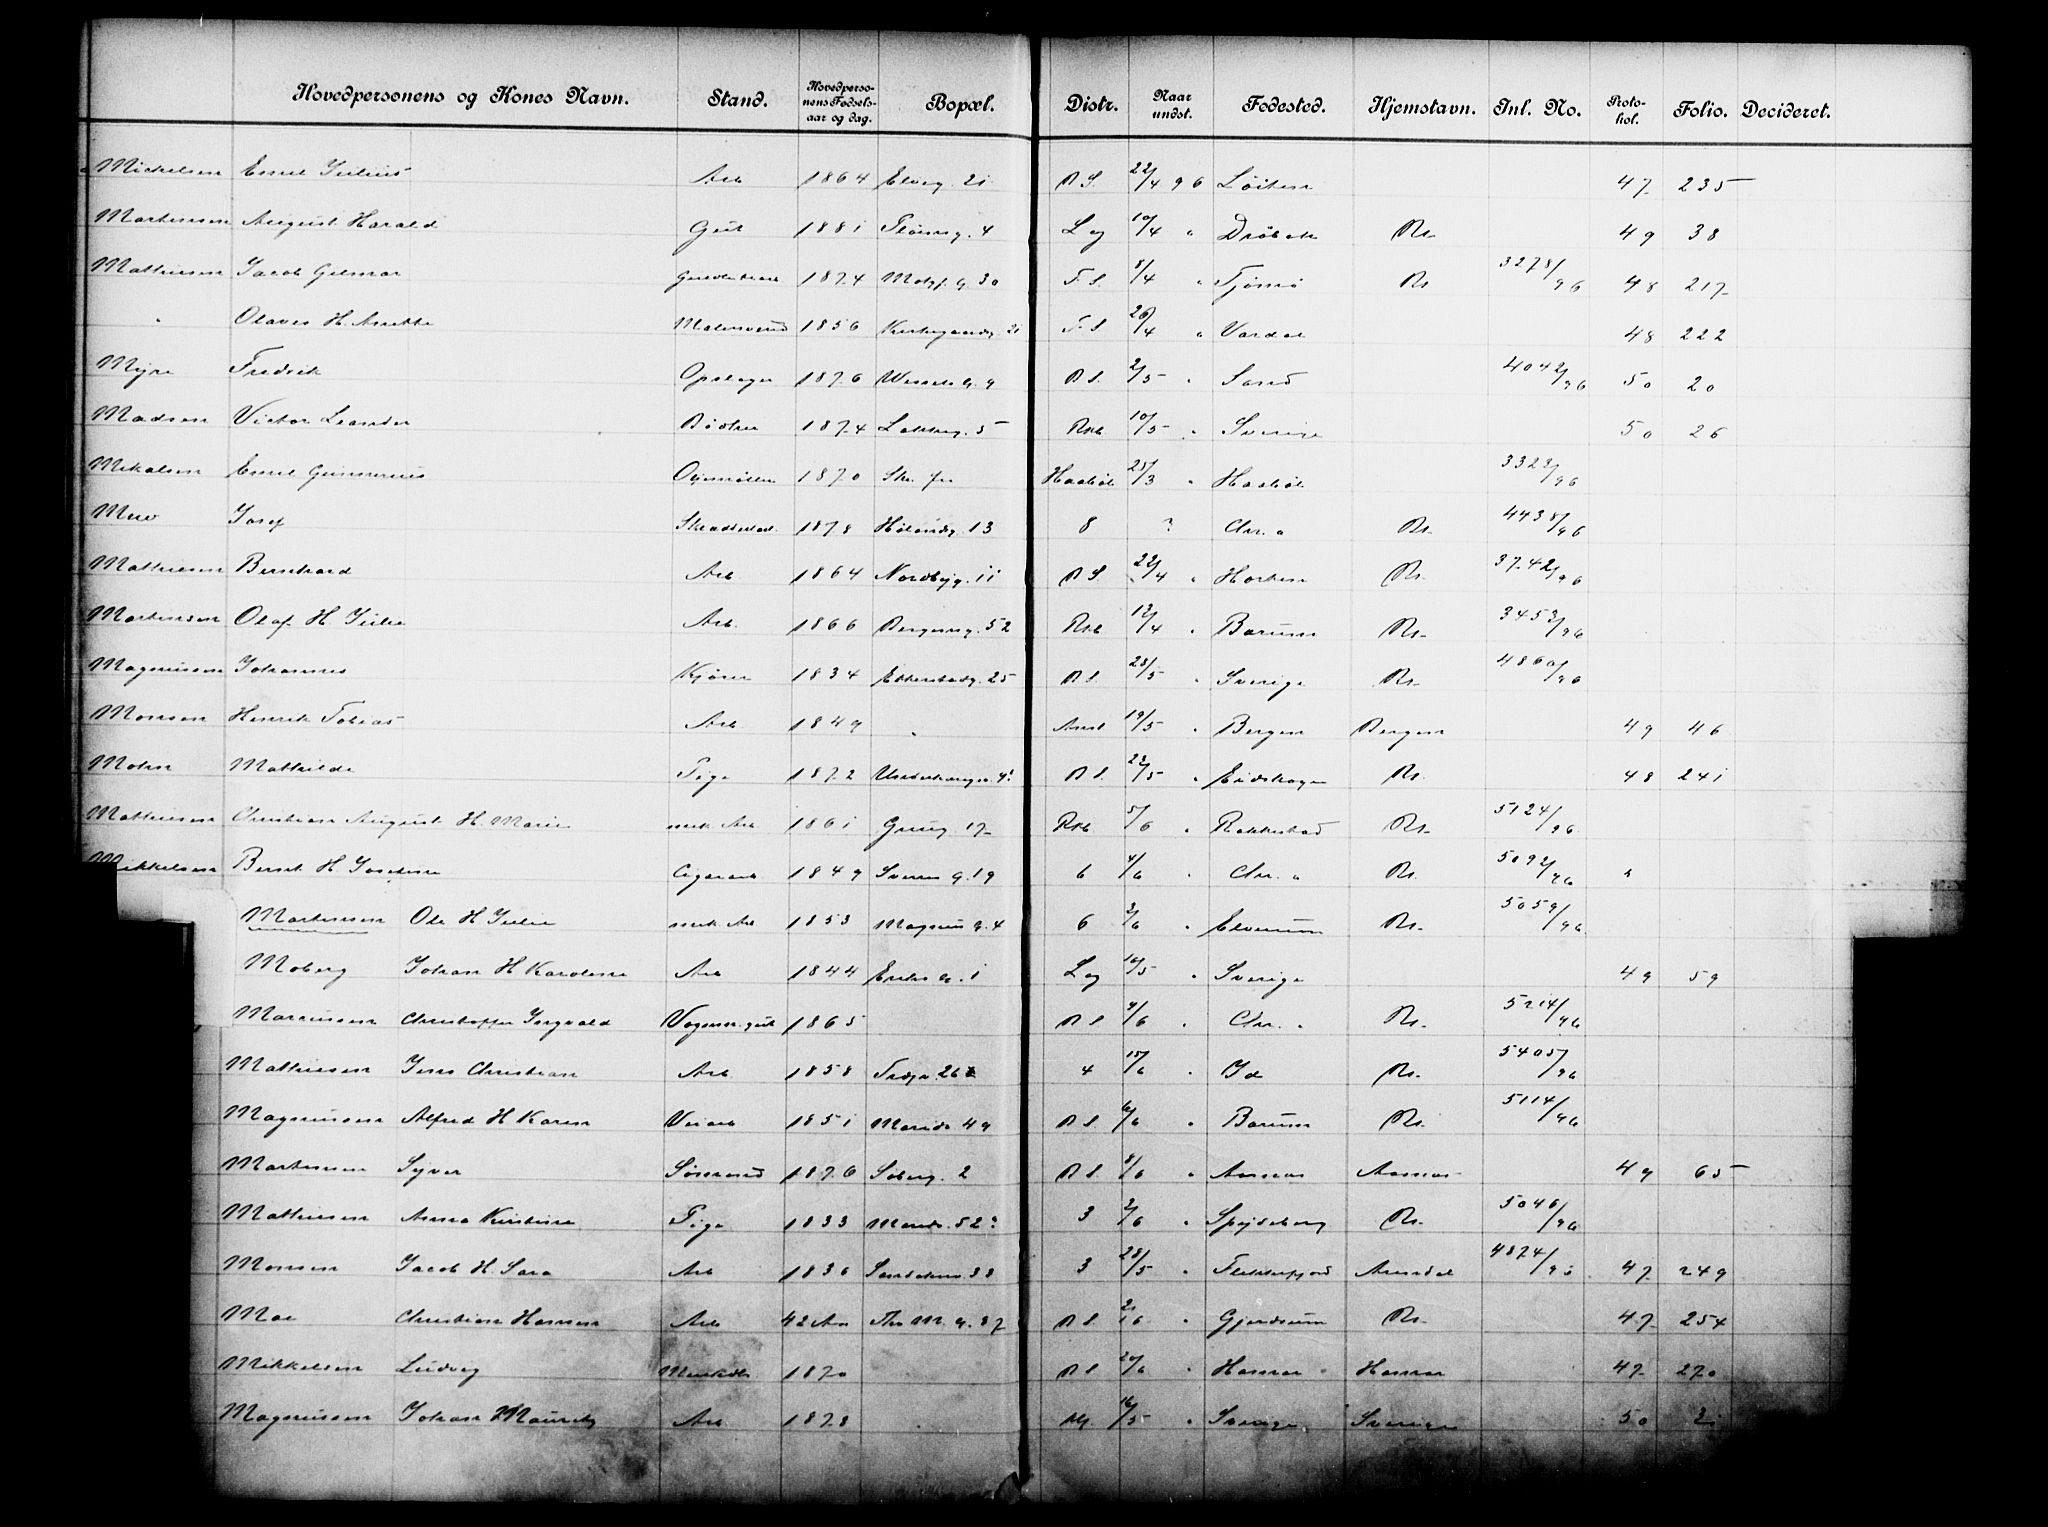 Hovedpersonens og Kones Navn. Stand. Hovedpersonens Fødselsaar og dag. Bopæl. Distr. Naar undst. Fødested. Hjemstavn. Inl. No. Protokol. Folio. Decideret.
Mickelsen Emil Julius Arb 1864 Elveg. 21 B S. 22/4 96 Löiten 47 235
Martinsen August Harald Gut 1881 4 Lag 10/4 " Dröbak Kr. 49 38
Mathiesen Jacob Gilmar 1874 30 F. S. 8/4 " Tjömö Kr 3278/96 48 217
" Olaves H. Anette 1856 21 F. S 26/4 " Vardal 48 222
Myre Fredrik Opsläger 1876 Wessels g. 9 B S. 2/5 " Sand 4042/96 50 20
Madsen Victor Leander Bödker 1874 Lakkeg. 5 Rkb 10/5 " Sverige 50 26
Mikalsen Emil Gunnerius 1870 Haaböl 25/3 " Haaböl 3322/96
Josef 1878 13 8 ? Chr. a Kr. 4438/96
Mathiesen Bernhard Arb 1864 Nordbyg. 11 B S. 22/4 " Horten Kr. 3742/96
Martinsen Olaf H Julie Arb. 1866 Bergensg. 52 Rkb 12/4 " Barum Kr. 3453/96
Magnusen Johannes Kjörer 1834 Etterstadg. 25 B S. 28/5 " Sverige Kr. 4860/96
Monsen Henrik Tobias Arb 1849 " Anst 19/5 " Bergen Bergen 49 46
Mohn Mathilde Pige 1872 B S. 22/5 " Eidskogen Kr. 48 241
Mathiesen Christian August H. Marie mek. Arb. 1861 Grüng 17 Rkb 5/6 " Rakkestad Kr. 5124/96
Mikkelsen Bernt H Josefine Cigararb 1849 Sverres g. 19 6 4/6 " Chr. a Kr. 5092/96 "
Martinsen Ole H Julie mek. Arb 1853 Magnus g. 4 6 3/6 " Elverum Kr. 5059/96
Moberg Johan H Karoline Arb 1844 Eriks g. 1 Lag 16/5 " Sverige 49 59
Marcusen Christoffer Ingvald Vognm. gut 1865 B S 9/6 " Chr. a Kr. 5214/96
Mathiesen Jens Christian Arb. 1858 4 15/6 " Id Kr. 5405/96
Magnusen Alfred H Karen Veiarb 1851 Marids. 49 B S 6/6 " Barum Kr. 5114/96
Martinsen Syver Sömand 1876 Söberg. 2 B S. 8/6 " Aamaas Aamaas 49 65
Mathiesen Anna Kristine Pige 1833 Marids. 52 3 2/6 " Spydeberg Kr. 5046/96
Monsen Jacob H. Sara Arb 1836 33 3 28/5 " Flekkefjord Arendal 4874/96 47 249
Moe Christian Hansen Arb 42 Aar Ths M. g. 27 B S. 2/6 " Gjerdrum Kr. 47 254
Mikkelsen Ludvig 1870 B S 20/6 " Hamar Hamar 47 270
Magnussen Johan Mauritz Arb. 1878 16/5 " Sverige Sverige 50